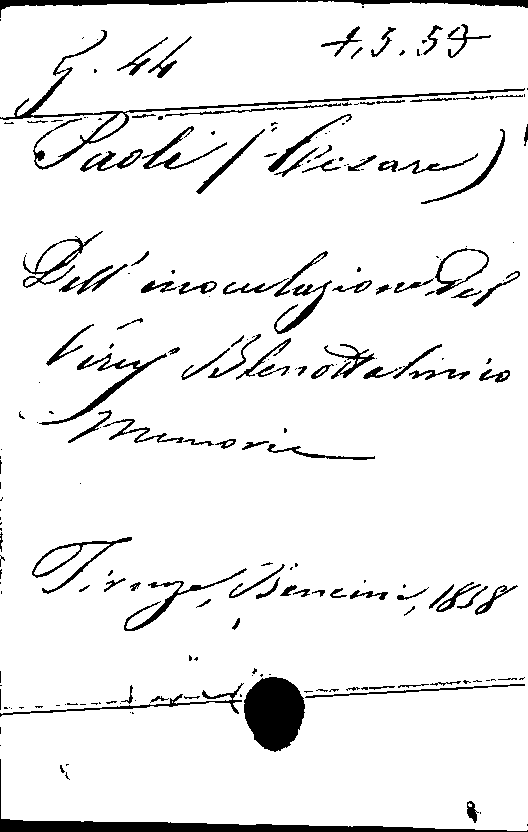 G. 44 4,5.59
Paoli (Cesare)
Dell' inoculazione del
Virus Blenottalmico
Memoria
Firenze, Bencini, 1858